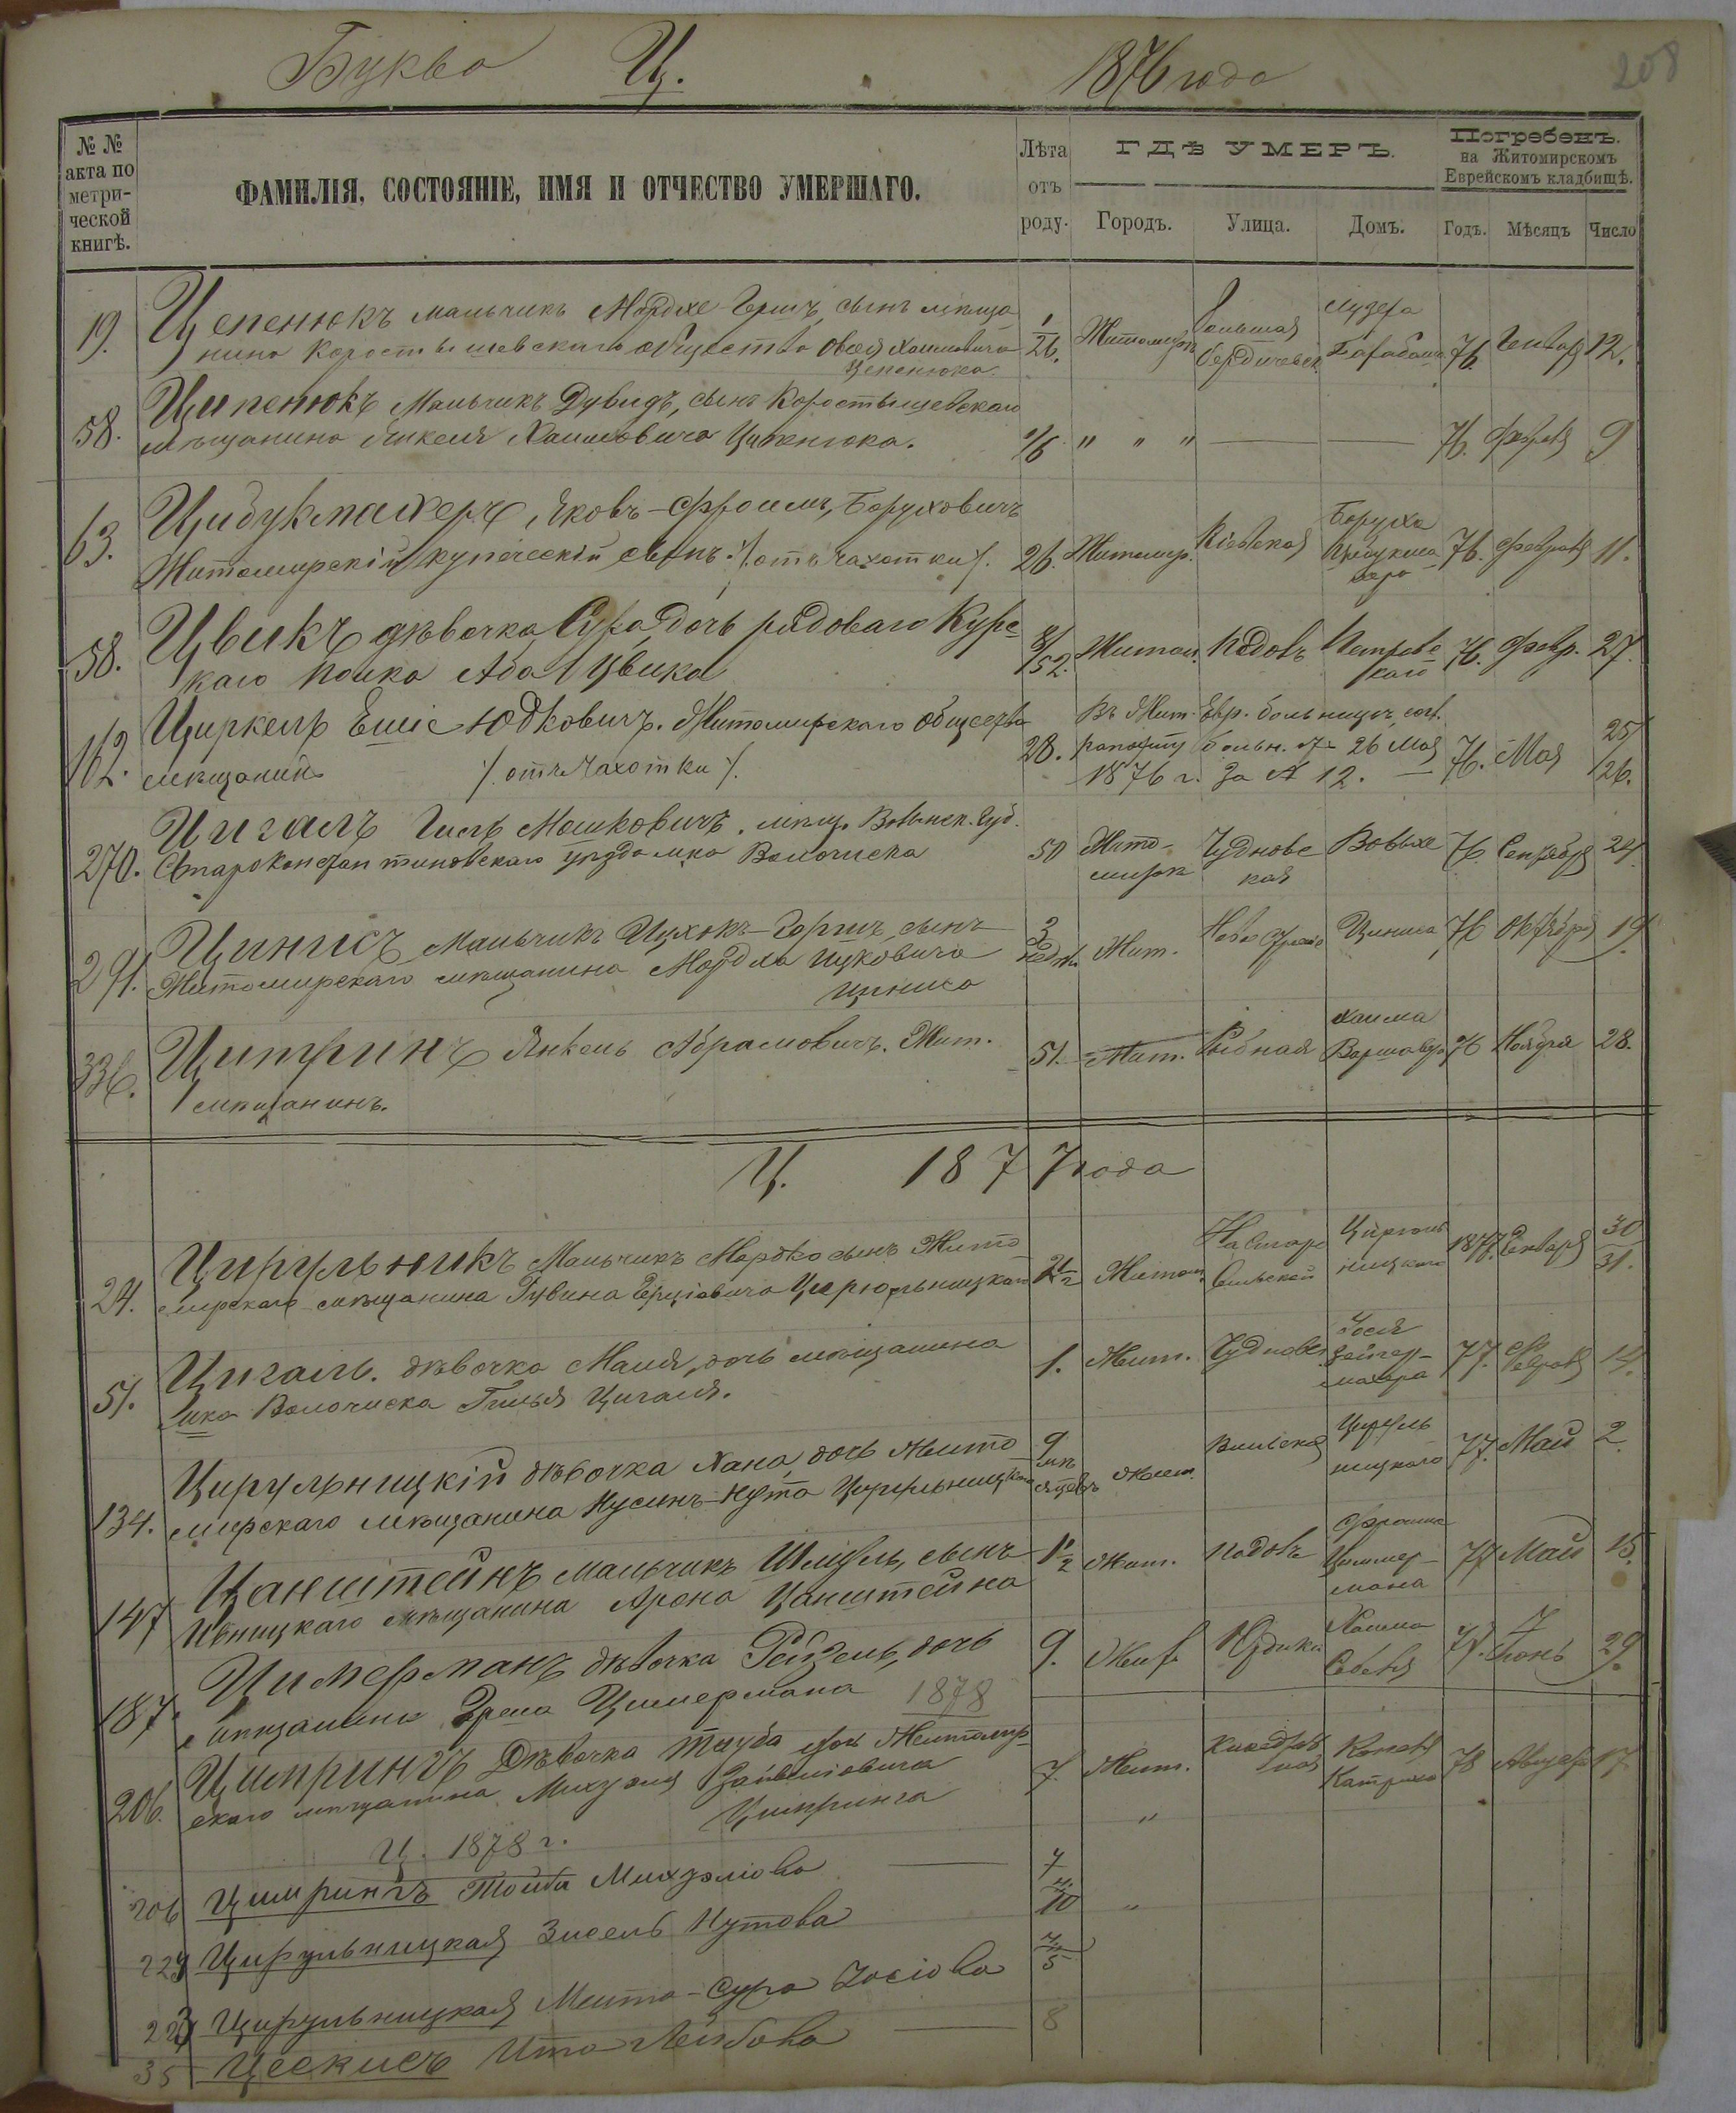 Буква Ц. 1876 года 208
№ № акта по метрической книгѣ.
ФАМИЛІЯ, СОСТОЯНІЕ, ИМЯ И ОТЧЕСТВО УМЕРШАГО.
Лѣта отъ роду.
ГДѢ УМЕРЪ.
Городъ. Улица. Домъ.
Погребенъ.
на Житомирскомъ
Еврейскомъ кладбищѣ.
Годъ. Мѣсяцъ Число
19. Цепенюкъ мальчикъ Мордхе-Гершъ, сынъ мѣща
нина Коростышевскаго общества Овсея Хаимовича
Цепенюка. 1/26. Житомиръ Большая Бердичевск. Лузера Барабана 76. Генваря 12.
58. Ципенюкъ Мальчикъ Дувидъ, сынъ Коростышевскаго
мѣщанина Янкеля Хаимовича Ципенюка. 1/6 " " " — — 76. февраля 9
63. Цибукмахеръ, Яковъ-Фроимъ, Боруховичъ
Житомирскій купеческій сынъ ./. отъ чахотки ./. 26. Житомир. Кіевская Боруха Цибукмахера 76. февраля 11.
58. Цвикъ дѣвочка Сура, дочь рядоваго Курс
каго полка Аба Цвика 8/52. Житом. Подолъ Петровскаго 76. февр. 27.
162. Циркель Еше Юдковичъ. Житомирскаго общества
мѣщанинъ ./. отъ чахотки ./. 28. Въ Жит. Евр. больницѣ, согл.
рапорту больн. отъ 26 Мая
1876 г. за № 12. — 76. Мая 25/26.
270. Цигаль Гиль Мошковичъ. мѣщ. Волынск. губ.
Староконстантиновскаго уѣзда мка Волочиска 50 Житомиръ Чудновская Вовыхе 76. Сентября 24.
291. Цинисъ Мальчикъ Ицхокъ-Гершъ, сынъ
Житомирскаго мѣщанина Мордха Ицковича
Циниса 3 недѣл. Жит. Циниса 76 Октября 19.
336. Цитринъ Янкель Абрамовичъ. Жит.
мѣщанинъ. 51. Жит. Рыбная Хаима 76 Ноября 28.
Ц. 1877 года
24. Цирульникъ Мальчикъ Мордко сынъ Жито
мирскаго мѣщанина Рувина Цирюльницкаго 2 1/2 Житом. Цирюльницкаго 1877. Генваря 30/31.
51. Цигаль. дѣвочка Маля, дочь мѣщанина
мка Волочиска Гилья Цигаля. 1. Жит. Чудновск. Іося Зейгермахера 77. Февраля 14.
134. Цирульницкій дѣвочка Хана, дочь Жито
мирскаго мѣщанина Нусинъ-Нута Цирульницкаго 9 мѣсяцевъ Жит. Вильская Цирульницкаго 77. Май 2.
147 Цанштейнъ мальчикъ Шмуль, сынъ
Ивницкаго мѣщанина Арона Цанштейна 1 1/2 Жит. Подолъ Фроима Циммермана 77 Май 15.
187. Цимерманъ дѣвочка Рейзель, дочь
мѣщанина Цимермана 9. Жит. Юридика Хаима 77. Іюнь 29.
1878
206. Цитрингъ Дѣвочка Тауба дочь Житомир
скаго мѣщанина Михеля Зайвеліовича
Цитринга 7. Жит. Кафедральная 78 Августа 17
Ц. 1878 г. "
206 Цитрингъ Тойба Михэліова — 7
229 Цирульницкая Зисель Нутова 10 "
223 Цирульницкая Минта-Сура Іосіова 5
35 Цескисъ Ита Лейбова — 8